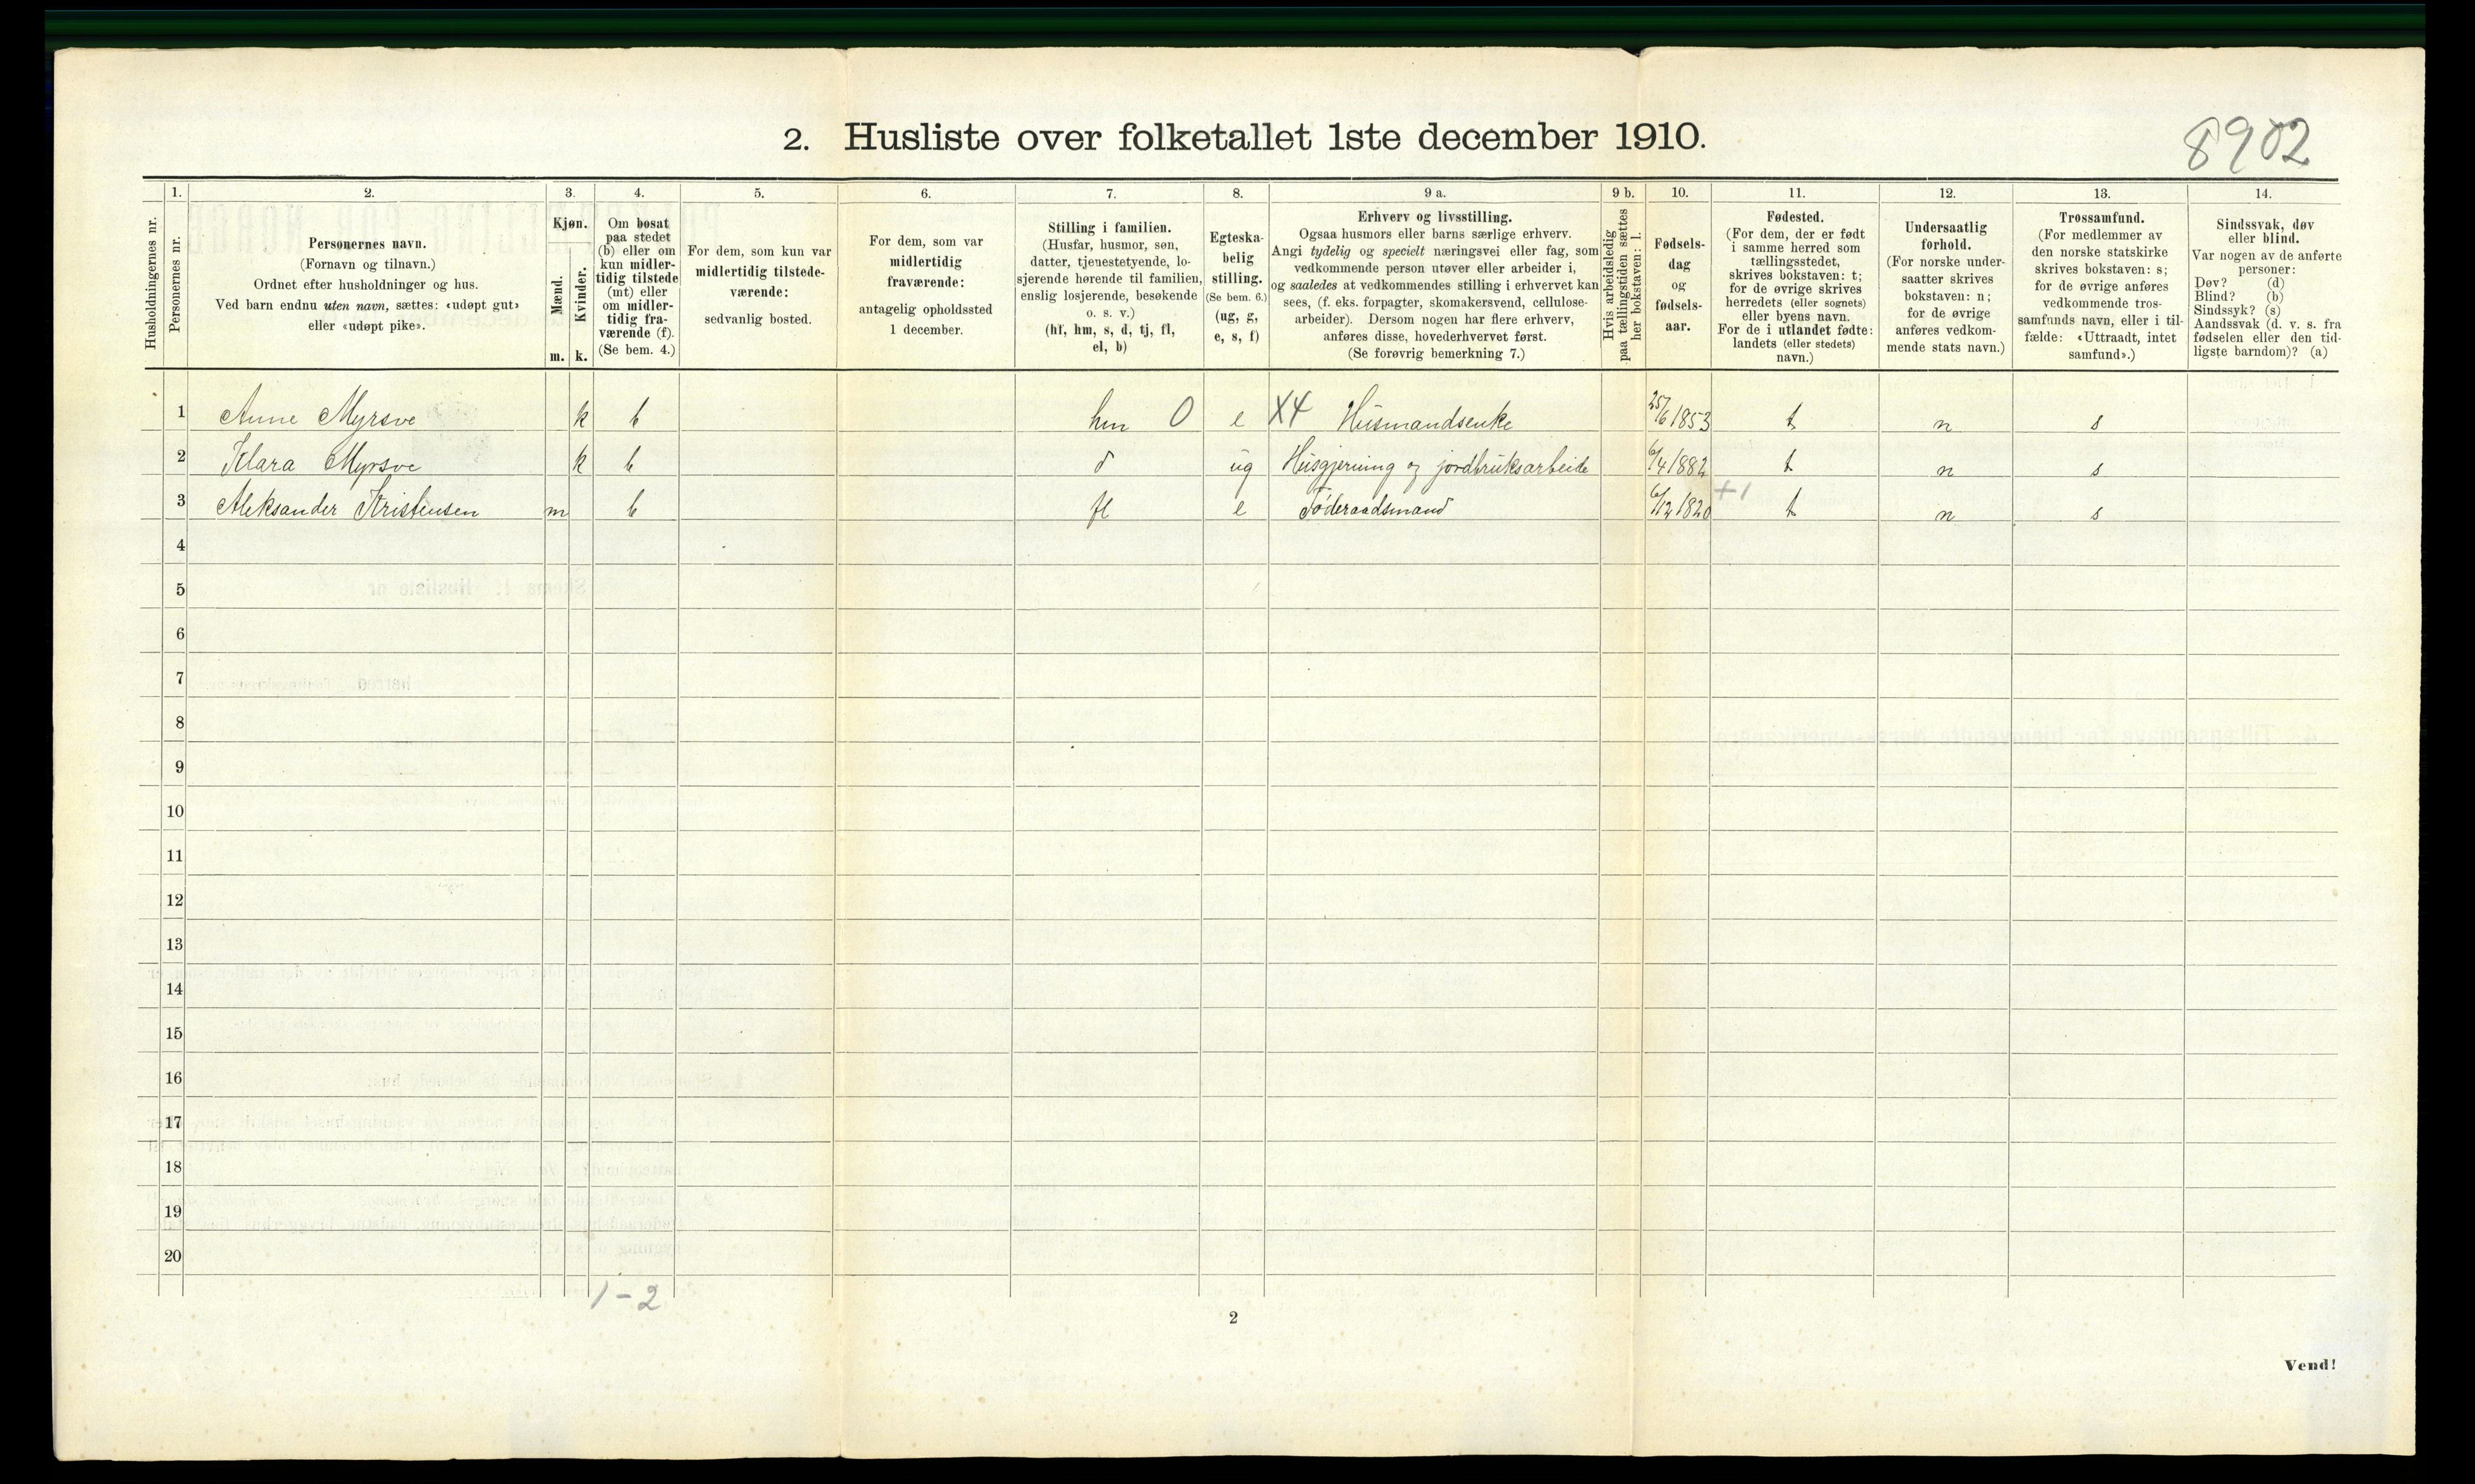 8902
2. Husliste over folketallet 1ste december 1910.
Husholdningernes nr.
1.
Personernes nr.
2.
Personernes navn.
(Fornavn og tilnavn.)
Ordnet efter husholdninger og hus.
Ved barn endnu uten navn, sættes: «udøpt gut»
eller «udøpt pike».
3.
Kjøn.
Mænd.
Kvinder.
m. k.
4.
Om bosat
paa stedet
(b) eller om
kun midler-
tidig tilstede
(mt) eller
om midler-
tidig fra-
værende (f).
(Se bem. 4.)
5.
For dem, som kun var
midlertidig tilstede-
værende:
sedvanlig bosted.
6.
For dem, som var
midlertidig
fraværende:
antagelig opholdssted
1 december.
7.
Stilling i familien.
(Husfar, husmor, søn,
datter, tjenestetyende, lo-
sjerende hørende til familien,
enslig losjerende, besøkende
o. s. v.)
(hf, hm, s, d, tj, fl,
el, b)
8.
Egteska-
belig
stilling.
(Se bem. 6.)
(ug, g,
e, s, f)
9 a.
Erhverv og livsstilling.
Ogsaa husmors eller barns særlige erhverv.
Angi tydelig og specielt næringsvei eller fag, som
vedkommende person utøver eller arbeider i,
og saaledes at vedkommendes stilling i erhvervet kan
sees, (f. eks. forpagter, skomakersvend, cellulose-
arbeider). Dersom nogen har flere erhverv,
anføres disse, hovederhvervet først.
(Se forøvrig bemerkning 7.)
9 b.
Hvis arbeidsledig
paa tællingstiden sættes
her bokstaven: l.
10.
Fødsels-
dag
og
fødsels-
aar.
11.
Fødested.
(For dem, der er født
i samme herred som
tællingsstedet,
skrives bokstaven: t;
for de øvrige skrives
herredets (eller sognets)
eller byens navn.
For de i utlandet fødte:
landets (eller stedets)
navn.)
12.
Undersaatlig
forhold.
(For norske under-
saatter skrives
bokstaven: n;
for de øvrige
anføres vedkom-
mende stats navn.)
13.
Trossamfund.
(For medlemmer av
den norske statskirke
skrives bokstaven: s;
for de øvrige anføres
vedkommende tros-
samfunds navn, eller i til-
fælde: «Uttraadt, intet
samfund».)
14.
Sindssvak, døv
eller blind.
Var nogen av de anførte
personer:
Døv? (d)
Blind? (b)
Sindssyk? (s)
Aandssvak (d. v. s. fra
fødselen eller den tid-
ligste barndom)? (a)
1 Anne Myrsve k b hm 0 e X4 Husmandsenke 25/6 1853 t n s
2 Klara Myrsve k b d ug Husgjerning og jordbruksarbeide 6/4 1882 t n s
3 Aleksander Kristensen m b fl e Føderaadsmand 6/12 1820 +1 t n s
4
5
6
7
8
9
10
11
12
13
14
15
16
17
18
19
20
1-2
2
Vend!